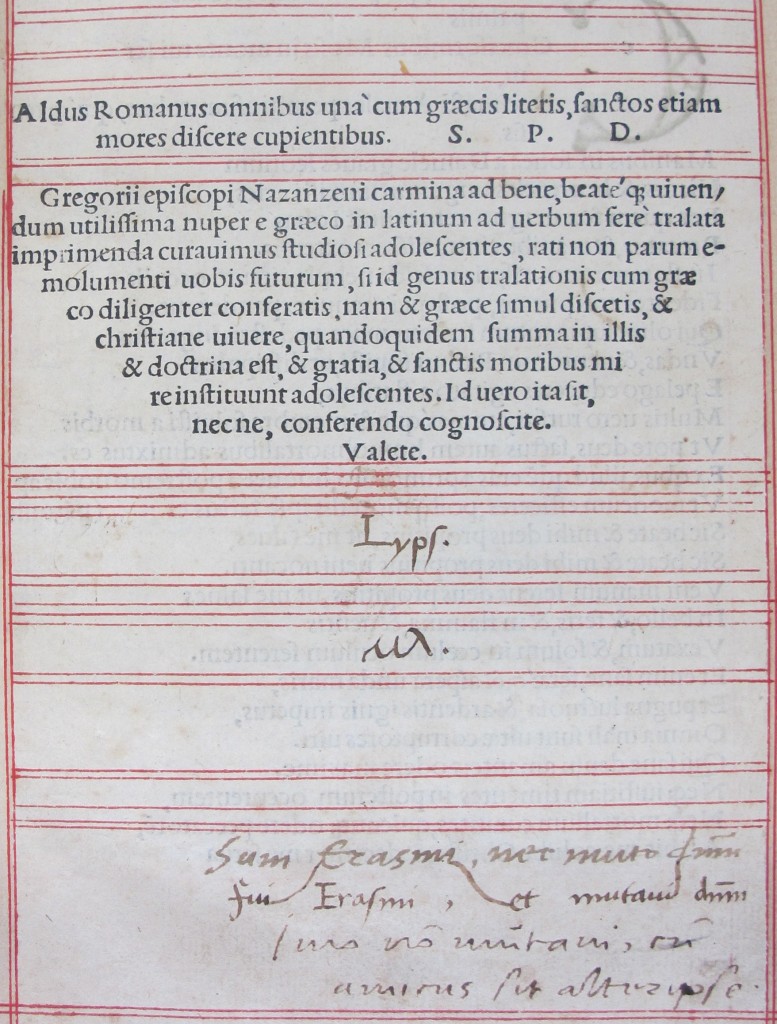 Aldus Romanus omnibus unà cum græcis literis, sanctos etiam
mores discere cupientibus. S. P. D.
Gregorii episcopi Nazanzeni carmina ad bene, beateq; uiuen,
dum utilissima nuper e græco in latinum ad uerbum ferè tralata
imprimenda curauimus studiosi adolescentes, rati non parum e-
molumenti uobis futurum, si id genus tralationis cum græ
co diligenter conferatis, nam & græce simul discetis, &
christiane uiuere, quandoquidem summa in illis
& doctrina est, & gratia, & sanctis moribus mi
re instituunt adolescentes. Id uero ita sit,
nec ne, conferendo cognoscite.
Valete.
Lyps.
Sum Erasmi, nec muto dñm
Fui Erasmi, et mutaui dñm
Imo nõ mutaui, cũ
amicus sit alter ipse.